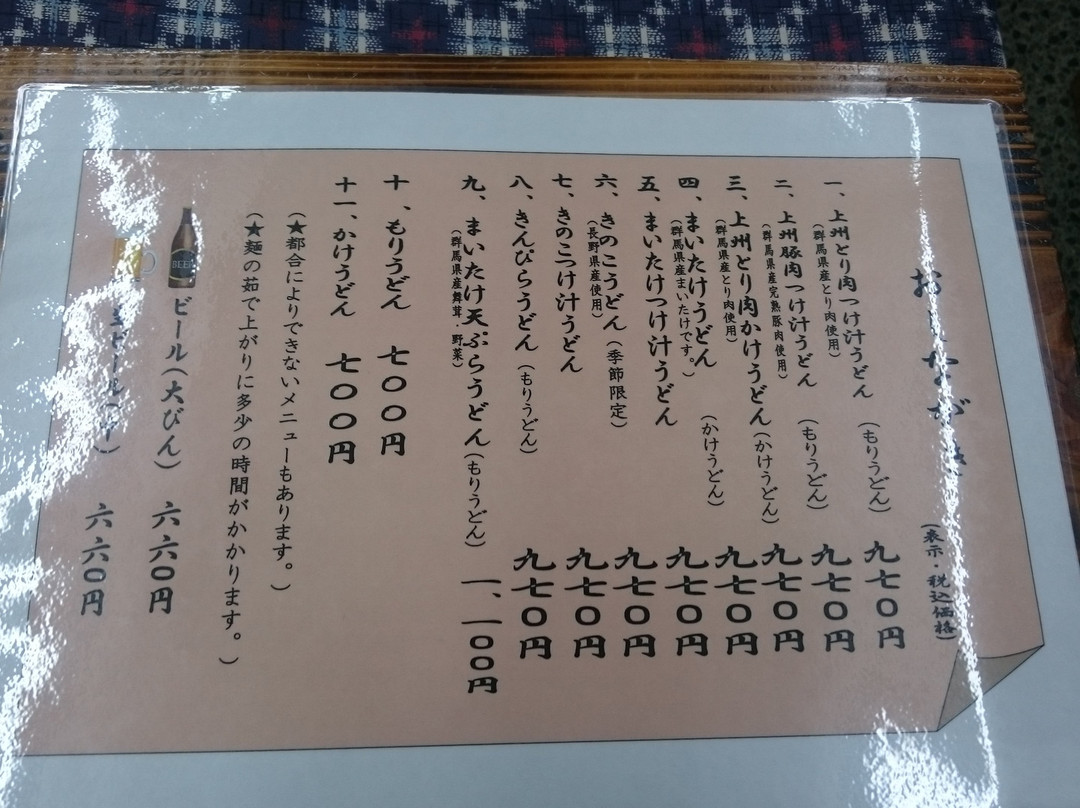 おしながき
（表示・税込価格）
一、上州とり肉つけ汁うどん（もりうどん）九七〇円
（群馬県産とり肉使用）
二、上州豚肉つけ汁うどん（もりうどん）九七〇円
（群馬県産完熟豚肉使用）
三、上州とり肉かけうどん（かけうどん）九七〇円
（群馬県産とり肉使用）
四、まいたけうどん（かけうどん）九七〇円
（群馬県産まいたけです。）
五、まいたけつけ汁うどん 九七〇円
六、きのこうどん（季節限定）九七〇円
（長野県産使用）
七、きのこつけ汁うどん 九七〇円
八、きんぴらうどん（もりうどん）九七〇円
九、まいたけ天ぷらうどん（もりうどん）一、一〇〇円
（群馬県産舞茸・野菜）
十、もりうどん 七〇〇円
十一、かけうどん 七〇〇円
（★都合によりできないメニューもあります。）
（★麺の茹で上がりに多少の時間がかかります。）
BEER
ビール（大びん）六六〇円
生ビール（中）六六〇円